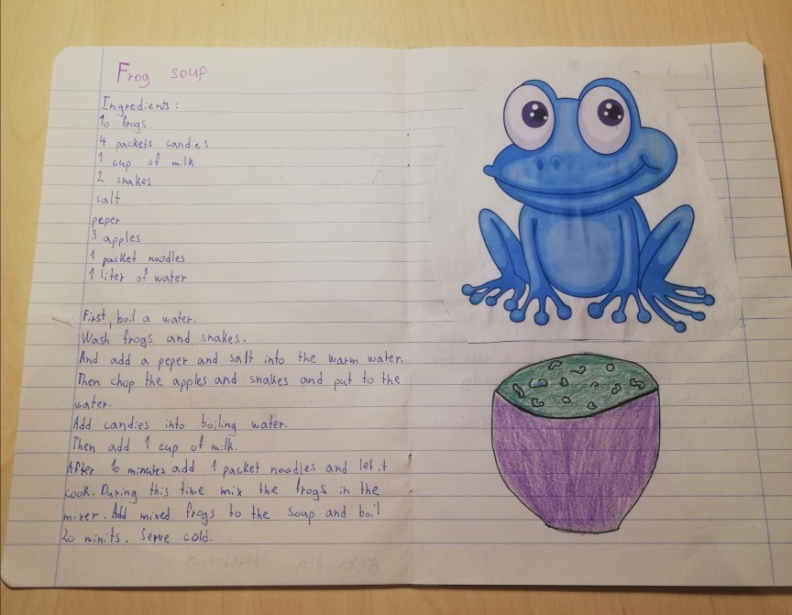 Frog soup
Ingredients:
10 frogs
4 packets candies
1 cup of milk
2 snakes
salt
peper
3 apples
1 packet noodles
1 liter of water
First, boil a water.
Wash frogs and snakes.
And add a peper and salt into the warm water.
Then chop the apples and snakes and put to the
water.
Add candies into boiling water.
Then add 1 cup of milk.
After 10 minutes add 1 packet noodles and let it
cook. During this time mix the frogs in the
mixer. Add mixed frogs to the soup and boil
20 minits. Serve cold.